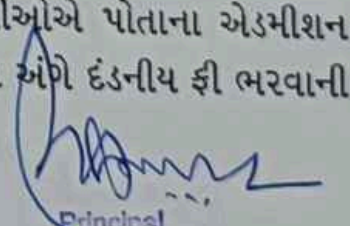 ઓએ પોતાના એડમીશન
અંગે દંડનીય ફી ભરવાની
Principal